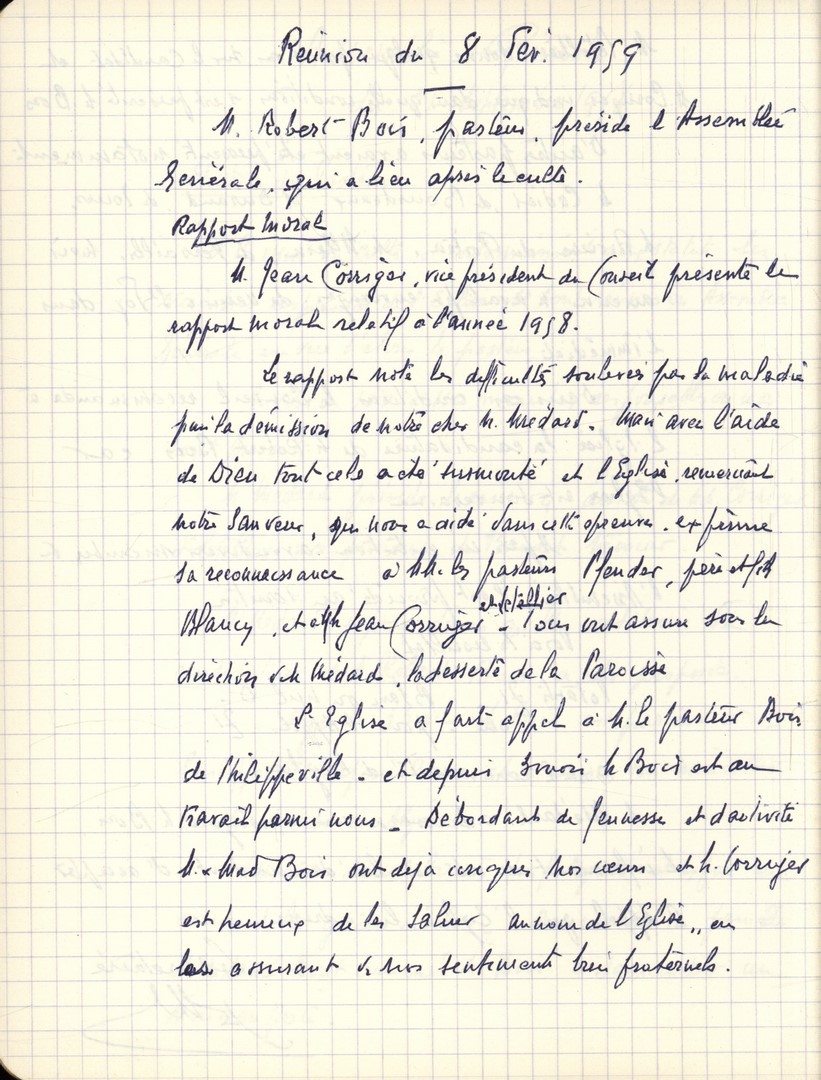 Réunion du 8 Fév. 1959
M. Robert Bois, pasteur, préside l'Assemblée
Générale, qui a lieu après le culte.
Rapport moral
M. Jean Corriger, vice président du Conseil présente le
rapport moral relatif à l'année 1958.
Le rapport note les difficultés soulevées par la maladie
puis la démission de notre cher M. Médard. Mais avec l'aide
de Dieu tout cela a été surmonté et l'Eglise, remerciant
notre Sauveur, qui nous a aidé dans cette épreuve, exprime
sa reconnaissance à MM. les pasteurs Pfender, père et fils
Blancy, et à M Jean Corriger et
Tous ont assuré sous la
direction de M Médard, la desserte de la Paroisse
L'Eglise a fait appel à M. le pasteur Bois
de Philippeville - et depuis mois M Bois est au
travail parmi nous - Débordant de Jeunesse et d'activité
M. & Mad Bois ont déjà conquis nos cœurs et M. Corriger
est heureux de les saluer au nom de l'Eglise, en
les assurant de nos sentiments bien fraternels.